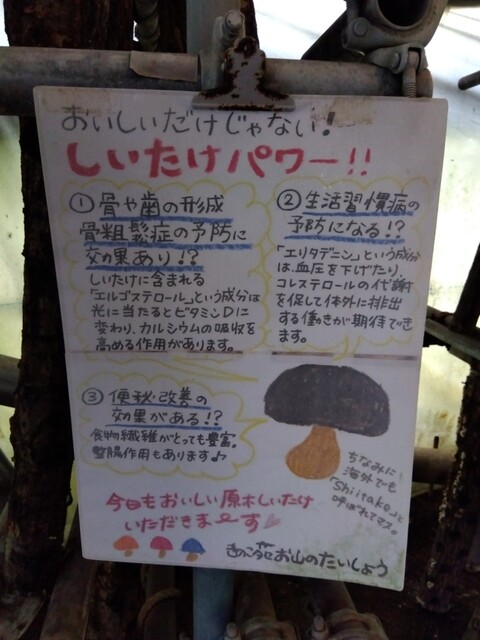 おいしいだけじゃない!
しいたけパワー!!
①骨や歯の形成
骨粗鬆症の予防に
効果あり!?
しいたけに含まれる
「エルゴステロール」という成分は
光に当たるとビタミンDに
変わり、カルシウムの吸収を
高める作用があります。
②生活習慣病の
予防になる!?
「エリタデニン」という成分
は、血圧を下げたり、
コレステロールの代謝
を促して体外に排出
する働きが期待でき
ます。
③便秘改善の
効果がある!?
食物繊維がとっても豊富。
整腸作用もあります♪
ちなみに
海外でも
「Shiitake」と
呼ばれてマス。
今日もおいしい原木しいたけ
いただきま〜す
お山のたいしょう